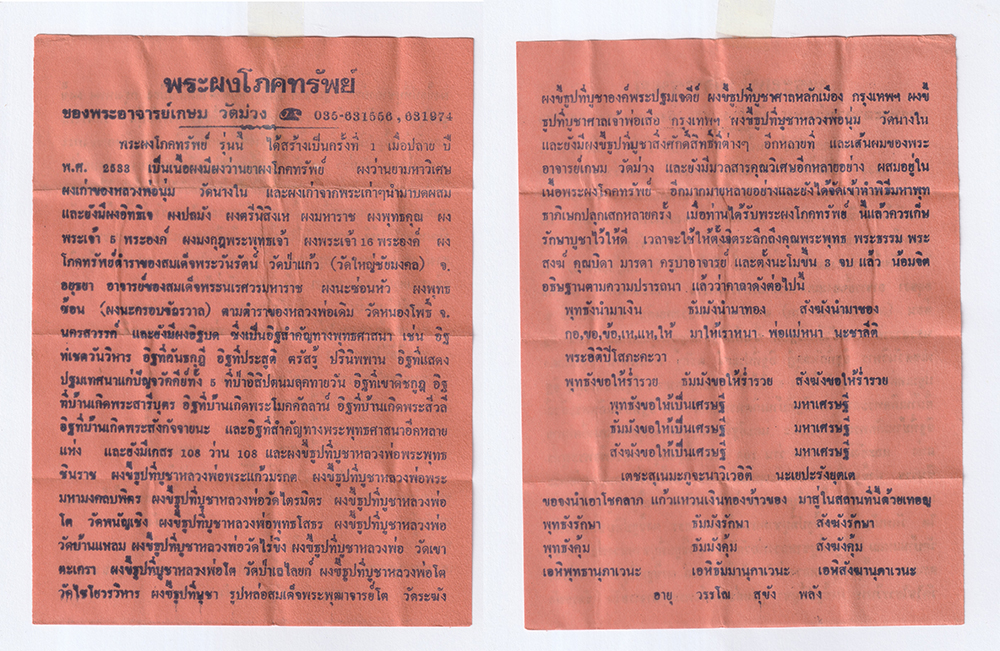 พระผงโภคทรัพย์
ของพระอาจารย์เกษม วัดม่วง 035-631556, 631974
พระผงโภคทรัพย์ รุ่นนี้ ได้สร้างเป็นครั้งที่ 1 เมื่อปลาย ปี
พ.ศ. 2533 เป็นเนื้อผงมีผงว่านยาผงโภคทรัพย์ ผงว่านยามหาวิเศษ
ผงเก่าของหลวงพ่อนุ่ม วัดนางใน และผงเก่าจากพระเก่าๆนำมาบดผสม
และยังมีผงอิทธิเจ ผงปถมัง ผงตรีนิสิงเห ผงมหาราช ผงพุทธคุณ ผง
พระเจ้า 5 พระองค์ ผงมงกุฎพระพุทธเจ้า ผงพระเจ้า 16 พระองค์ ผง
โภคทรัพย์ตำราของสมเด็จพระวันรัตน์ วัดป่าแก้ว (วัดใหญ่ชัยมงคล) จ.
อยุธยา อาจารย์ของสมเด็จพระนเรศวรมหาราช ผงนะซ่อนหัว ผงพุทธ
ซ้อน (ผงนะครอบจักรวาล) ตามตำราของหลวงพ่อเดิม วัดหนองโพธิ์ จ.
นครสวรรค์ และยังมีผงอิฐบด ซึ่งเป็นอิฐสำคัญทางพุทธศาสนา เช่น อิฐ
ที่เชตวันวิหาร อิฐที่คันธกุฎี อิฐที่ประสูติ ตรัสรู้ ปรินิพพาน อิฐที่แสดง
ปฐมเทศนาแก่ปัญจวัคคีย์ทั้ง 5 ที่ป่าอิสิปตนมลุคทายวัน อิฐที่เขาคิชกูฎ อิฐ
ที่บ้านเกิดพระสารีบุตร อิฐที่บ้านเกิดพระโมคคัลลาน์ อิฐที่บ้านเกิดพระสีวลี
อิฐที่บ้านเกิดพระสังกัจจายนะ และอิฐที่สำคัญทางพระพุทธศาสนาอีกหลาย
แห่ง และยังมีเกสร 108 ว่าน 108 และผงขี้ธูปที่บูชาหลวงพ่อพระพุทธ
ชินราช ผงขี้ธูปที่บูชาหลวงพ่อพระแก้วมรกต ผงขี้ธูปที่บูชาหลวงพ่อพระ
มหามงคลบพิตร ผงขี้ธูปที่บูชาหลวงพ่อวัดไตรมิตร ผงขี้ธูปที่บูชาหลวงพ่อ
โต วัดพนัญเชิง ผงขี้ธูปที่บูชาหลวงพ่อพุทธโสธร ผงขี้ธูปที่บูชาหลวงพ่อ
วัดบ้านแหลม ผงขี้ธูปที่บูชาหลวงพ่อวัดไร่ขิง ผงขี้ธูปที่บูชาหลวงพ่อ วัดเขา
ตะเครา ผงขี้ธูปที่บูชาหลวงพ่อโต วัดป่าเลไลยก์ ผงขี้ธูปที่บูชาหลวงพ่อโต
วัดไชโยวรวิหาร ผงขี้ธูปที่บูชา รูปหล่อสมเด็จพระพุฒาจารย์โต วัดระฆัง
ผงขี้ธูปที่บูชาองค์พระปฐมเจดีย์ ผงขี้ธูปที่บูชาศาลหลักเมือง กรุงเทพฯ ผงขี้
ธูปที่บูชาศาลเจ้าพ่อเสือ กรุงเทพฯ ผงขี้ธูปที่บูชาหลวงพ่อนุ่ม วัดนางใน
และยังมีผงขี้ธูปที่บูชาสิ่งศักดิ์สิทธิ์ที่ต่างๆ อีกหลายที่ และเส้นผมของพระ
อาจารย์เกษม วัดม่วง และยังมีมวลสารคุณวิเศษอีกหลายอย่าง ผสมอยู่ใน
เนื้อพระผงโภคทรัพย์ อีกมากมายหลายอย่างและยังได้จัดเข้าทำพิธีมหาพุท
ธาภิเษกปลุกเสกหลายครั้ง เมื่อท่านได้รับพระผงโภคทรัพย์ นี้แล้วควรเก็บ
รักษาบูชาไว้ให้ดี เวลาจะใช้ให้ตั้งจิตระลึกถึงคุณพระพุทธ พระธรรม พระ
สงฆ์ คุณบิดา มารดา ครูบาอาจารย์ และตั้งนะโมขึ้น 3 จบ แล้ว น้อมจิต
อธิษฐานตามความปรารถนา แล้วว่าคาถาดังต่อไปนี้
พุทธังนำมาเงิน ธัมมังนำมาทอง สังฆังนำมาของ
กอ,ขอ,ข้อ,เห,แห,ให้ มาให้เราหนา พ่อแม่หนา นะชาลีติ
พระอิติปิโสภะคะวา
พุทธังขอให้ร่ำรวย ธัมมังขอให้ร่ำรวย สังฆังขอให้ร่ำรวย
พุทธังขอให้เป็นเศรษฐี มหาเศรษฐี
ธัมมังขอให้เป็นเศรษฐี มหาเศรษฐี
สังฆังขอให้เป็นเศรษฐี มหาเศรษฐี
เตชะสุเนมะภูจะนาวิเวอิติ นะเยปะรังยุตเต
ขอจงนำเอาโชคลาภ แก้วแหวนเงินทองข้าวของ มาสู่ในสถานที่นี้ด้วยเทอญ
พุทธังรักษา ธัมมังรักษา สังฆังรักษา
พุทธังคุ้ม ธัมมังคุ้ม สังฆังคุ้ม
เอหิพุทธานุภาเวนะ เอหิธัมมานุภาเวนะ เอหิสังฆานุภาเวนะ
อายุ วรรโณ สุขัง พลัง